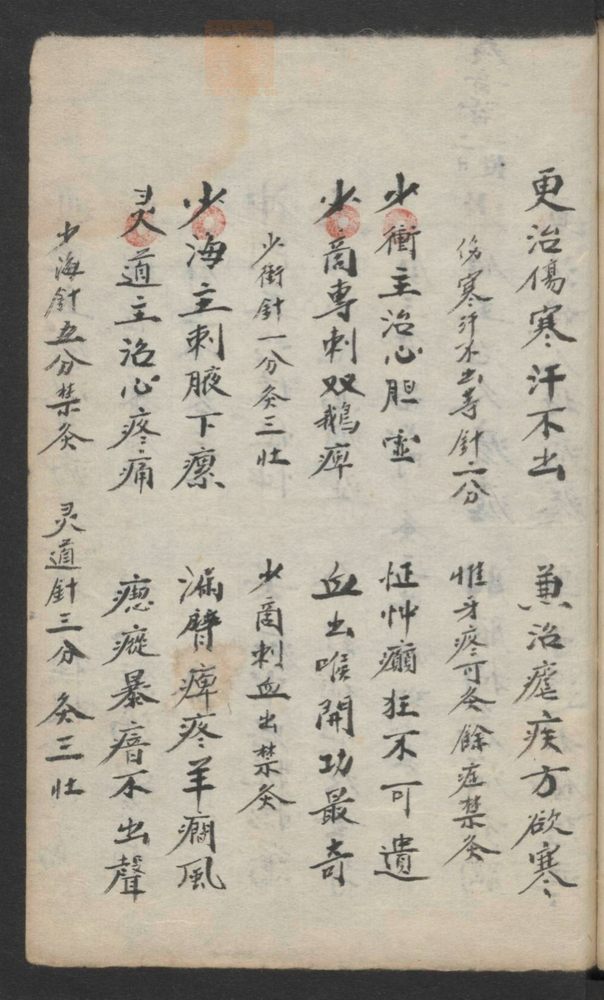 更治傷寒汗不出　兼治瘧疾方欲寒
伤寒汗不出等針二分　惟牙疼可灸餘症禁灸
少衝主治心胆虚　怔忡癲狂不可遺
少商專刺双鵝痺　血出喉開功最奇
少衝針一分灸三壯　少商刺血出禁灸
少海主刺腋下瘰　漏臂痺疼羊癇風
灵道主治心疼痛　瘛瘲暴瘖不出聲
少海針五分禁灸　灵道針三分　灸三壯